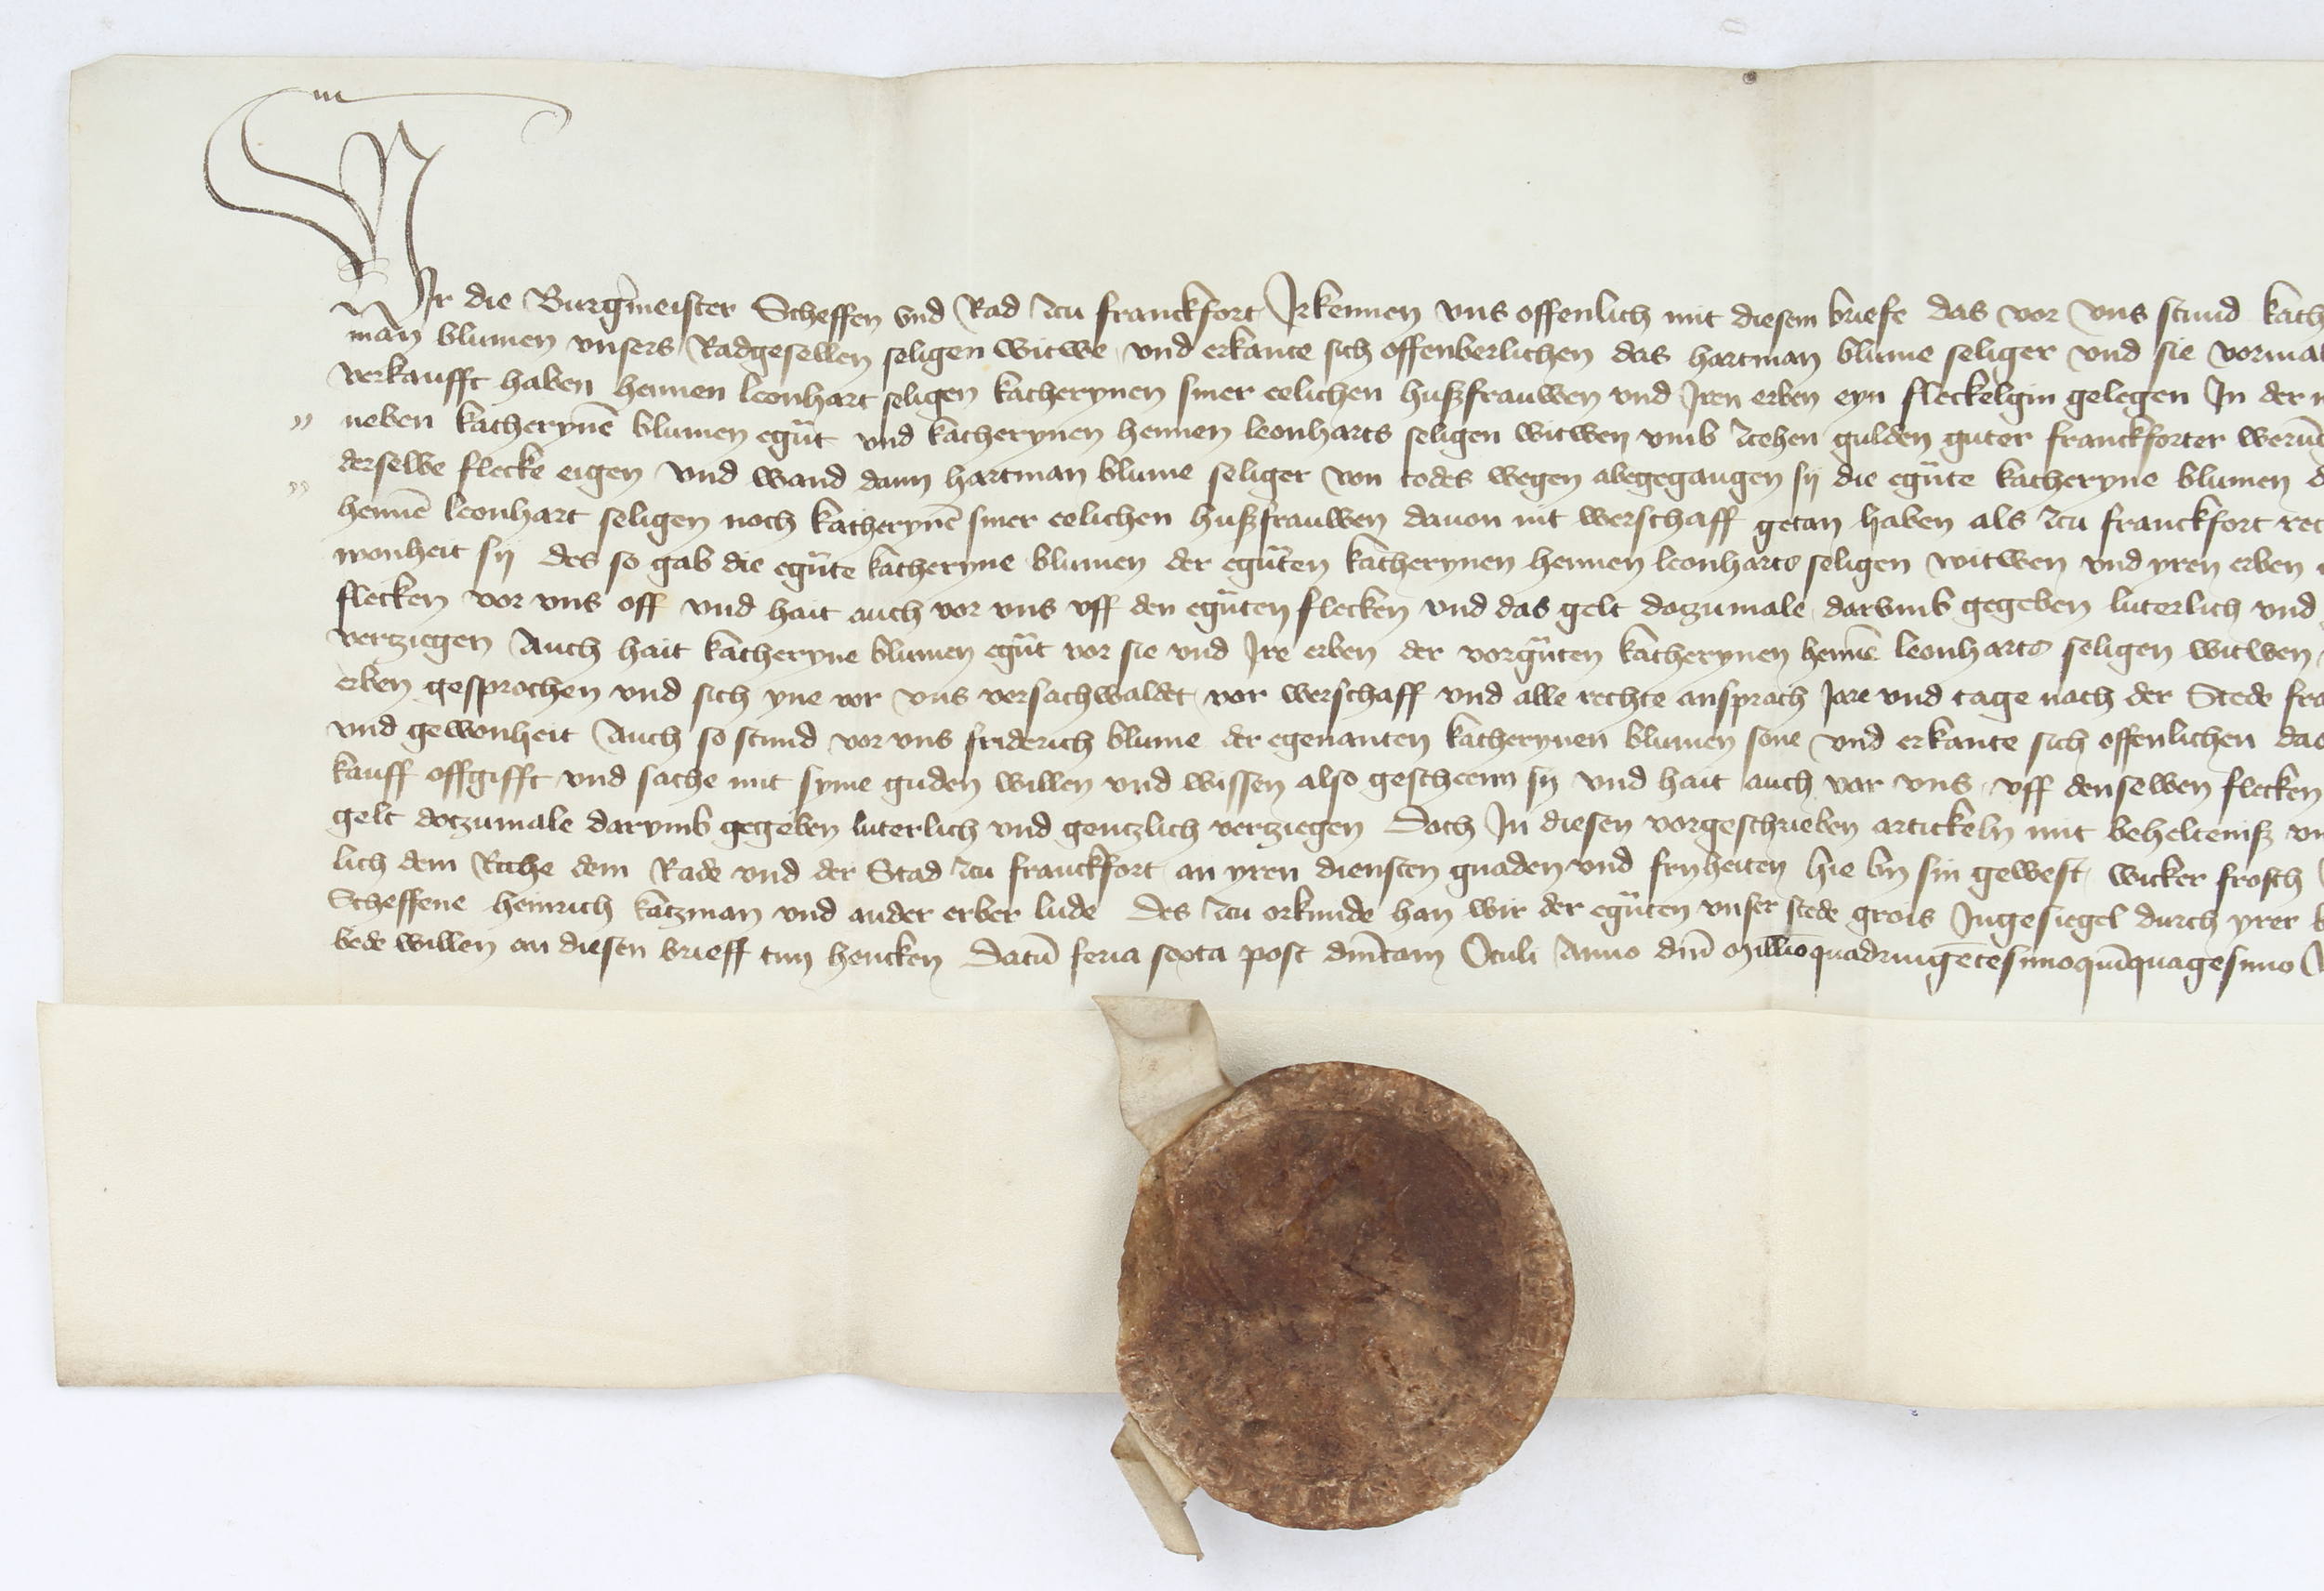 Wir die Burgermeister Scheffen vnd Rad zcu franckfort Irkennen vns offenlich mit diesem briefe das vor vns stund kath
man blumen vnsers Radgesellen seligen witwe vnd erkante sich offenberlichen das hartman blume seliger vnd sie vormal
verkaufft haben hennen leonhart seligen katherynen siner eelichen hußfrauwen vnd Iren erben eyn fleckelgin gelegen In der
neben katherynē blumen egūt vnd katherynen hennen leonharts seligen witwen vmb zcehen gulden guter franckforter werūg
derselbe flecke eigen vnd wand dann hartman blume seliger von todes wegen abegegangen sij die egūte katheryne blumen
hennē leonhart seligen noch katherynē siner eelichen hußfrauwen dauon nit werschaff getan haben als zcu franckfort rec
wonheit sij des so gab die egūte katheryne blumen der egūten katherynen hennen leonharts seligen witwen vnd yren erben
flecken vor vns off vnd hait auch vor vns vff den egūten flecken vnd das gelt dotzumale darvmb gegeben luterlich vnd
vertziegen Auch hait katheryne blumen egūt vor sie vnd Ire erben der vorgūten katherynen hennē leonharts seligen witwen
erben gesprochen vnd sich yne vor vns versachwaldet vor werschaff vnd alle rechte ansprach Jare vnd tage nach der Stede fra
vnd gewonheit Auch so stund vor vns friderich blume der egenanten katherynen blumen sone vnd erkante sich offenlichen das
kauff offgifft vnd sache mit syme guden willen vnd wissen also gescheenn sij vnd hait auch vor vns vff denselben flecken
gelt dotzumale darvmb gegeben luterlich vnd gentzlich vertziegen Doch In diesen vorgeschrieben artickeln mit behelteniß vn
lich dem Riche dem Rade vnd der Stad zcu franckfort an yren diensten gnaden vnd fryheiten hie by sin gewest wicker frosch
Scheffene heinrich katzman vnd ander erber lude Des zcu orkunde han wir der egūten vnser stede grois Ingesiegel durch yrer
bede willen an diesen brieff tun hencken Datū feria sexta post dm̄cam Oculi Anno dm̄ millīoquadringētesimoquīquagesimo